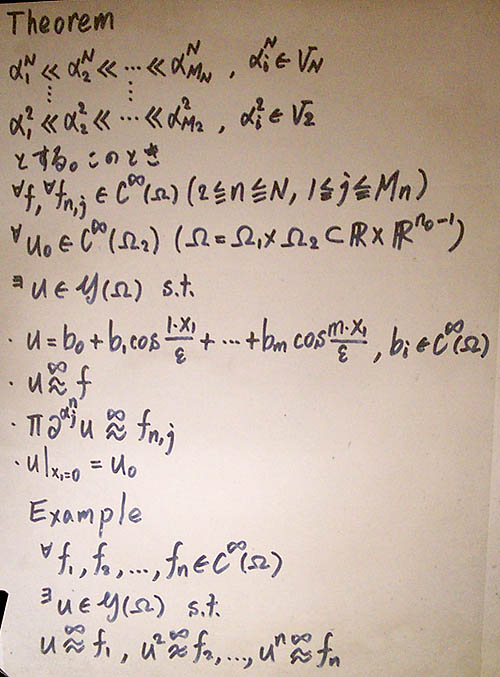 Theorem
α₁ᴺ ≪ α₂ᴺ ≪ ⋯ ≪ α_{M_N}^N , αᵢᴺ ∈ V_N
⋮ ⋮
α₁² ≪ α₂² ≪ ⋯ ≪ α_{M_2}^2 , αᵢ² ∈ V_2
とする。このとき
∀f, ∀f_{n,j} ∈ C^∞(Ω) (2 ≦ n ≦ N, 1 ≦ j ≦ M_n)
∀u₀ ∈ C^∞(Ω₂) (Ω = Ω₁ × Ω₂ ⊂ ℝ × ℝ^{n₀-1})
∃u ∈ 𝒴(Ω) s.t.
· u = b₀ + b₁ cos \frac{1·x₁}{ε} + ⋯ + b_m cos \frac{m·x₁}{ε} , bᵢ ∈ C^∞(Ω)
· u \overset{∞}{≈} f
· Π∂^{α_j^n} u \overset{∞}{≈} f_{n,j}
· u|_{x₁=0} = u₀
Example
∀f₁, f₂, …, f_n ∈ C^∞(Ω)
∃u ∈ 𝒴(Ω) s.t.
u \overset{∞}{≈} f₁ , u² \overset{∞}{≈} f₂, …, uⁿ \overset{∞}{≈} f_n